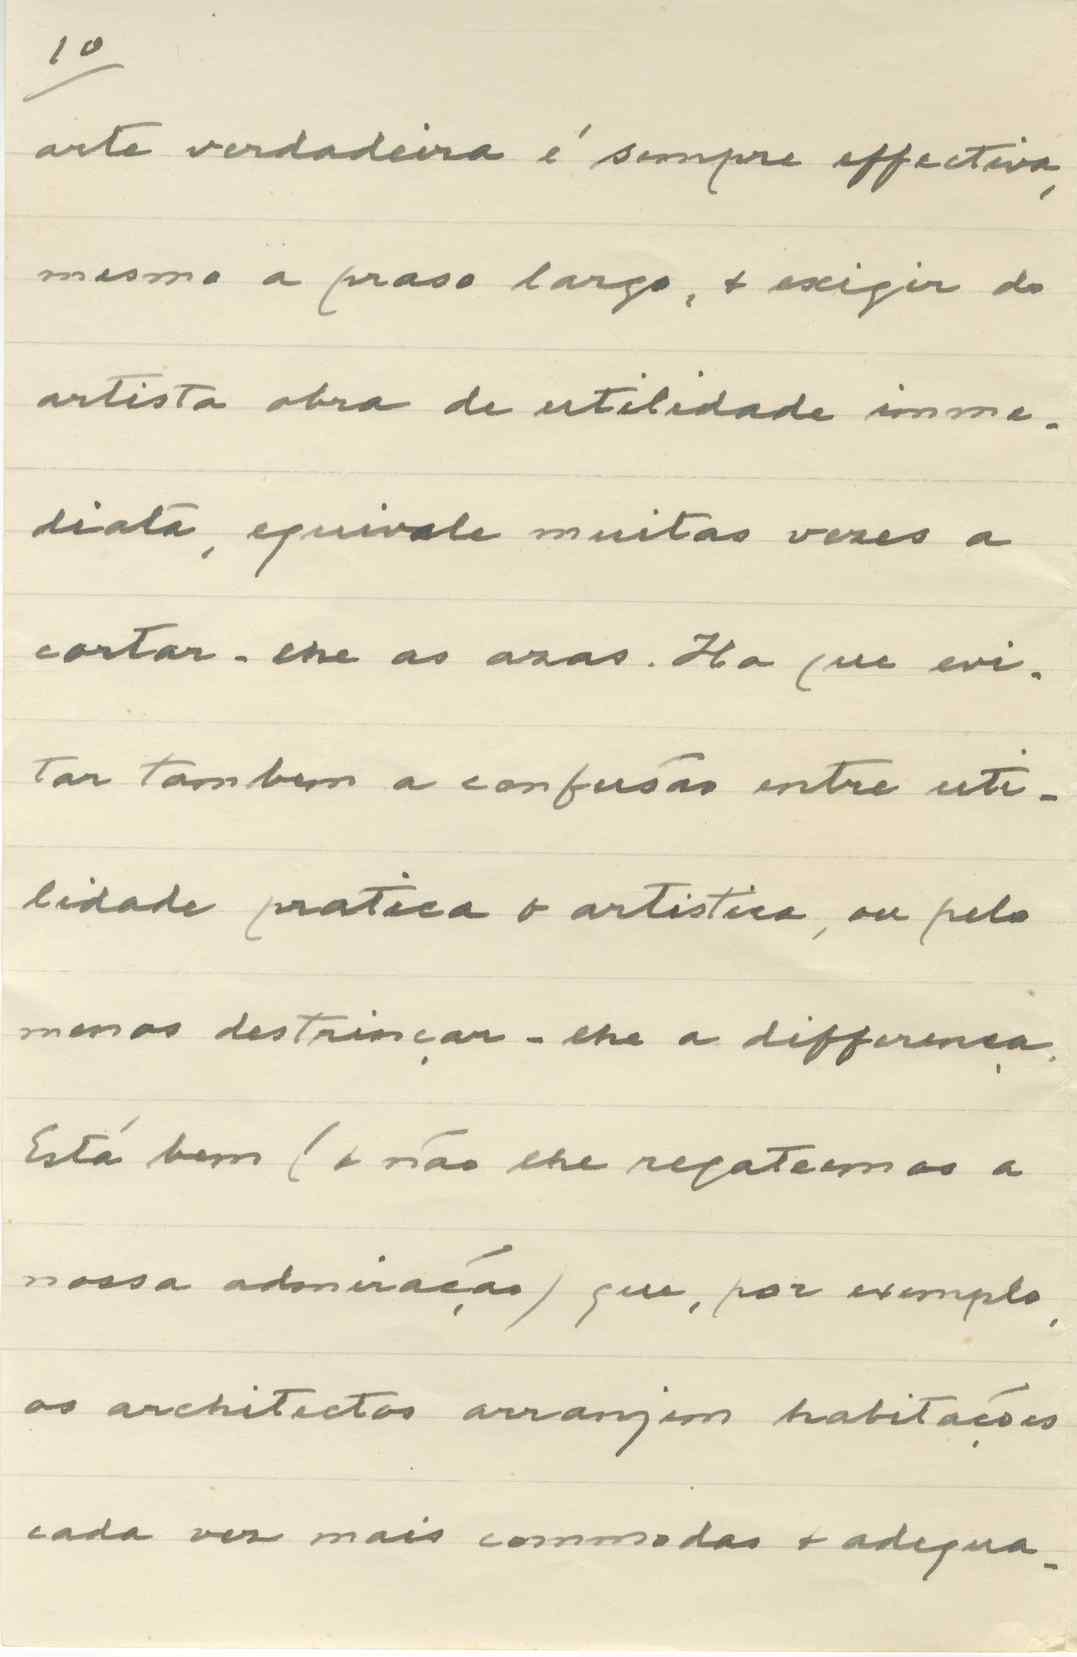 10
arte verdadeira é sempre effectiva,
mesmo a praso largo, & exigir do
artista obra de utilidade imme-
diata, equivale muitas vezes a
cortar-lhe as azas. Ha que evi-
tar tambem a confusão entre uti-
lidade pratica & artistica, ou pelo
menos destrinçar-lhe a differença.
Está bem (& não lhe regateemos a
nossa admiração) que, por exemplo,
os architectos arranjem habitações
cada vez mais commodas & adequa-